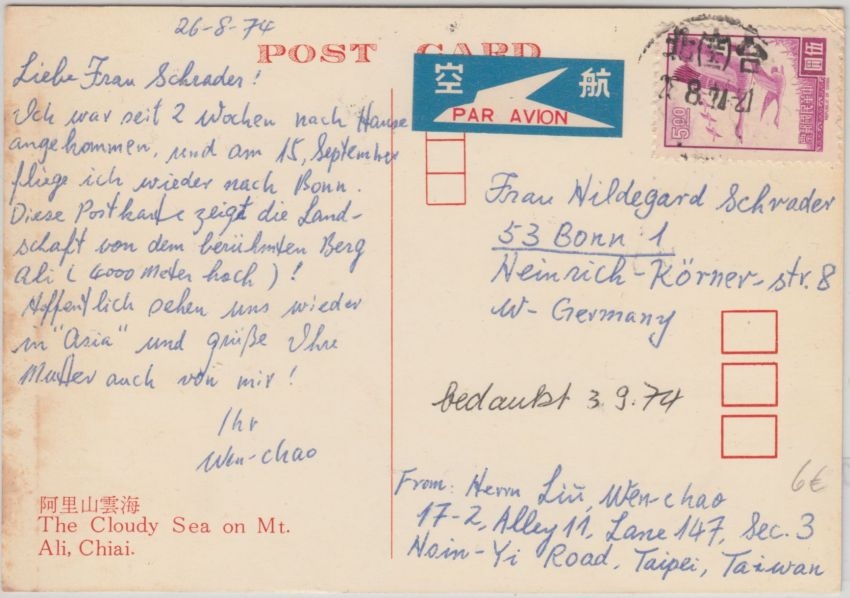 26-8-74
POST CARD
Liebe Frau Schrader!
Ich war seit 2 Wochen nach Hause
angekommen, und am 15, September
fliege ich wieder nach Bonn.
Diese Postkarte zeigt die Land-
schaft von dem berühmten Berg
Ali (4000 Meter hoch)!
Hoffentlich sehen uns wieder
in "Asia" und grüße Ihre
Mutter auch von mir!
Ihr
Wen-chao
阿里山雲海
The Cloudy Sea on Mt.
Ali, Chiai.
空 航
PAR AVION
伍圓
5.00
Frau Hildegard Schrader
53 Bonn 1
Heinrich-Körner-str. 8
W-Germany
bedankt 3.9.74
6€
From: Herrn Liu, Wen-chao
17-2, Alley 11, Lane 147, Sec. 3
Hsin-Yi Road, Taipei, Taiwan